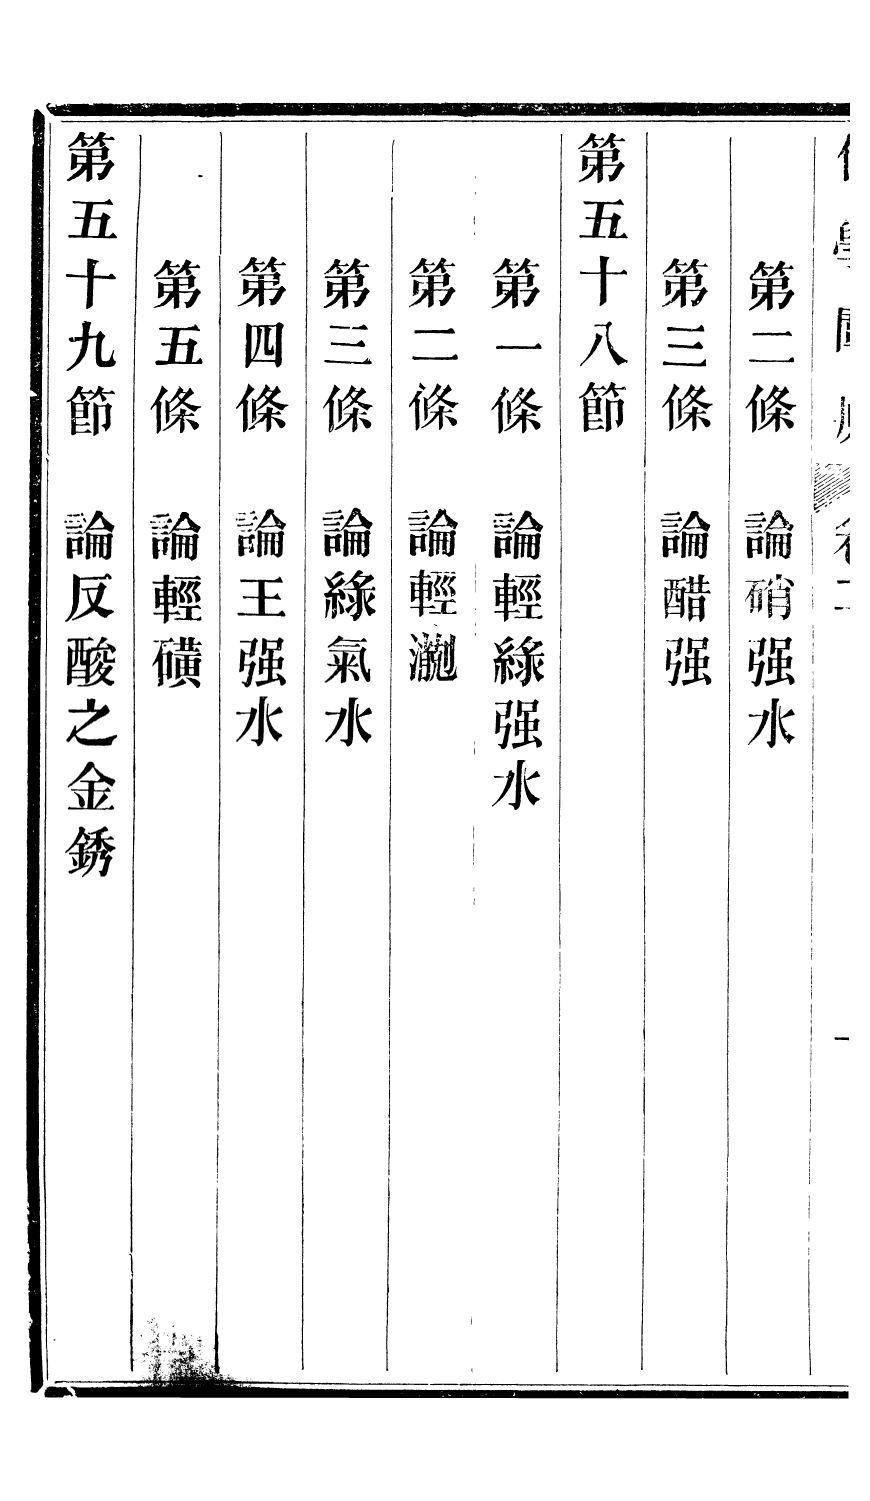 第二條　論硝强水
第三條　論醋强
第五十八節
第一條　論輕綠强水
第二條　論輕
第三條　論綠氣水
第四條　論王强水
第五條　論輕磺
第五十九節　論反酸之金銹